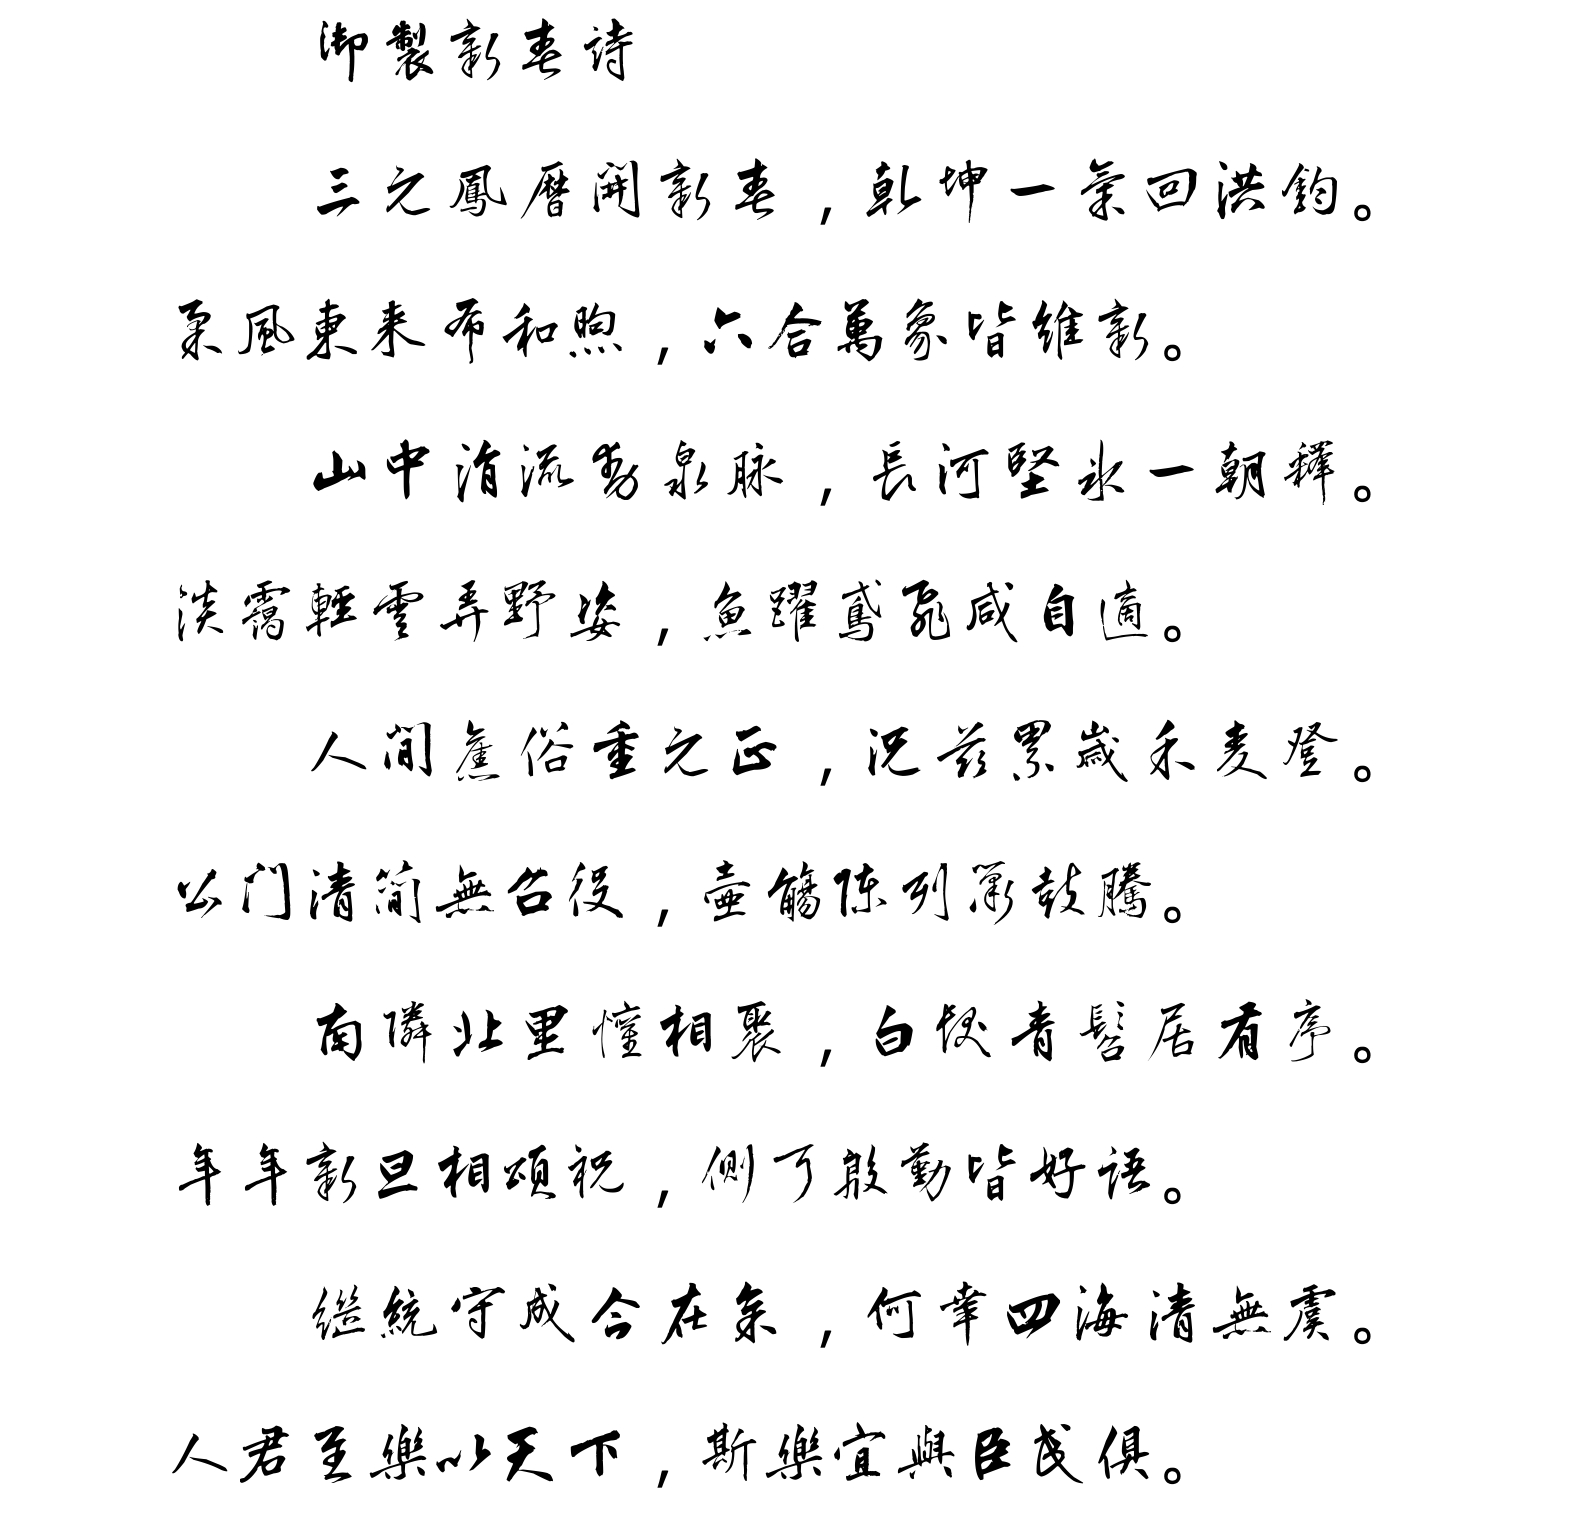 御製新春詩
三元鳳曆開新春，乾坤一氣回洪鈞。
柔風東来布和煦，六合萬象皆維新。
山中涓流動泉脉，長河堅冰一朝釋。
淡靄輕雲弄野姿，魚躍鳶飛咸自適。
人間舊俗重元正，況兹累歲禾麦登。
公門清簡無召役，壺觴陳列簫鼓騰。
南隣北里懽相聚，白髮青髫居有序。
年年新旦相頌祝，側耳殷勤皆好語。
繼統守成今在余，何幸四海清無虞。
人君至樂以天下，斯樂宜與臣民俱。